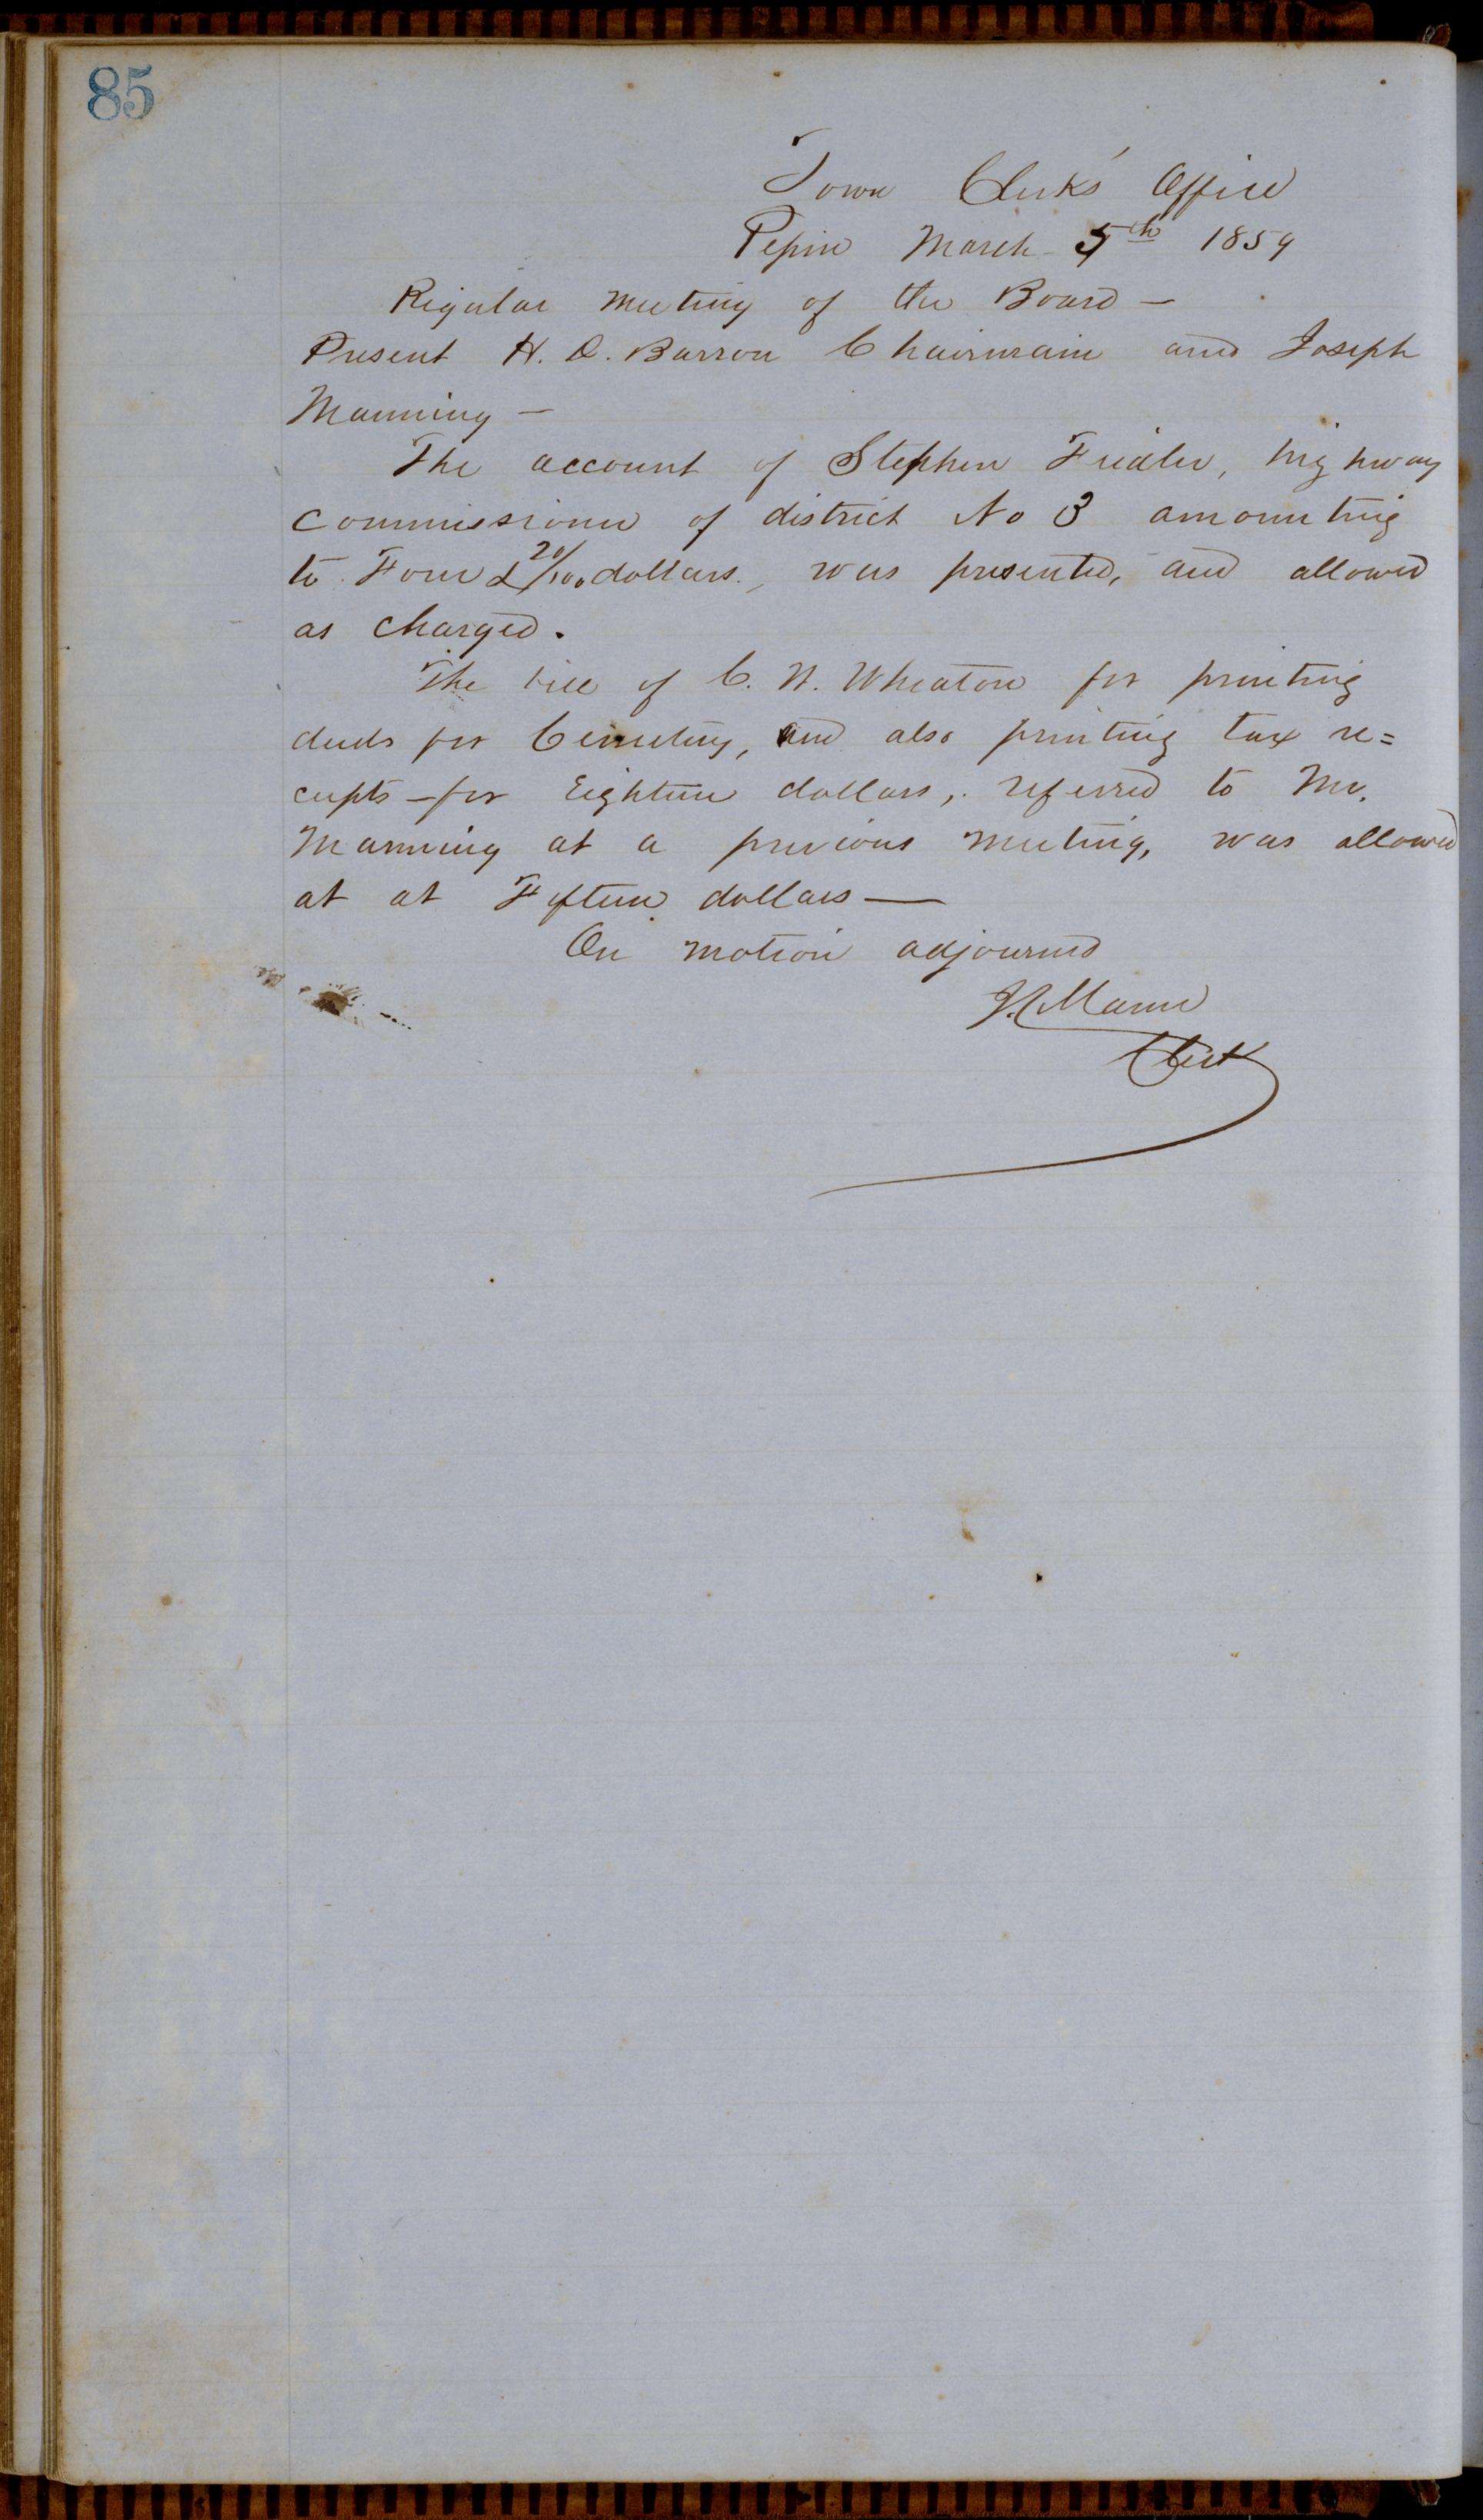 85
Town Clerk's Office
Pepin March 5th 1859
Regular meeting of the Board —
Present H. D. Barron Chairmain and Joseph
Manning —
The account of Stephen Fiedler, highway
commissioner of district No 3 amounting
to Four & 20/100 dollars., was presented, and allowed
as charged.
The bill of C. N. Wheaton for printing
deeds for Cemetery, and also printing tax re=
ceipts — for Eighteen dollars, referred to Mr.
Manning at a previous meeting, was allowed
at at Fifteen dollars —
On motion adjourned
J. Mann
Clerk